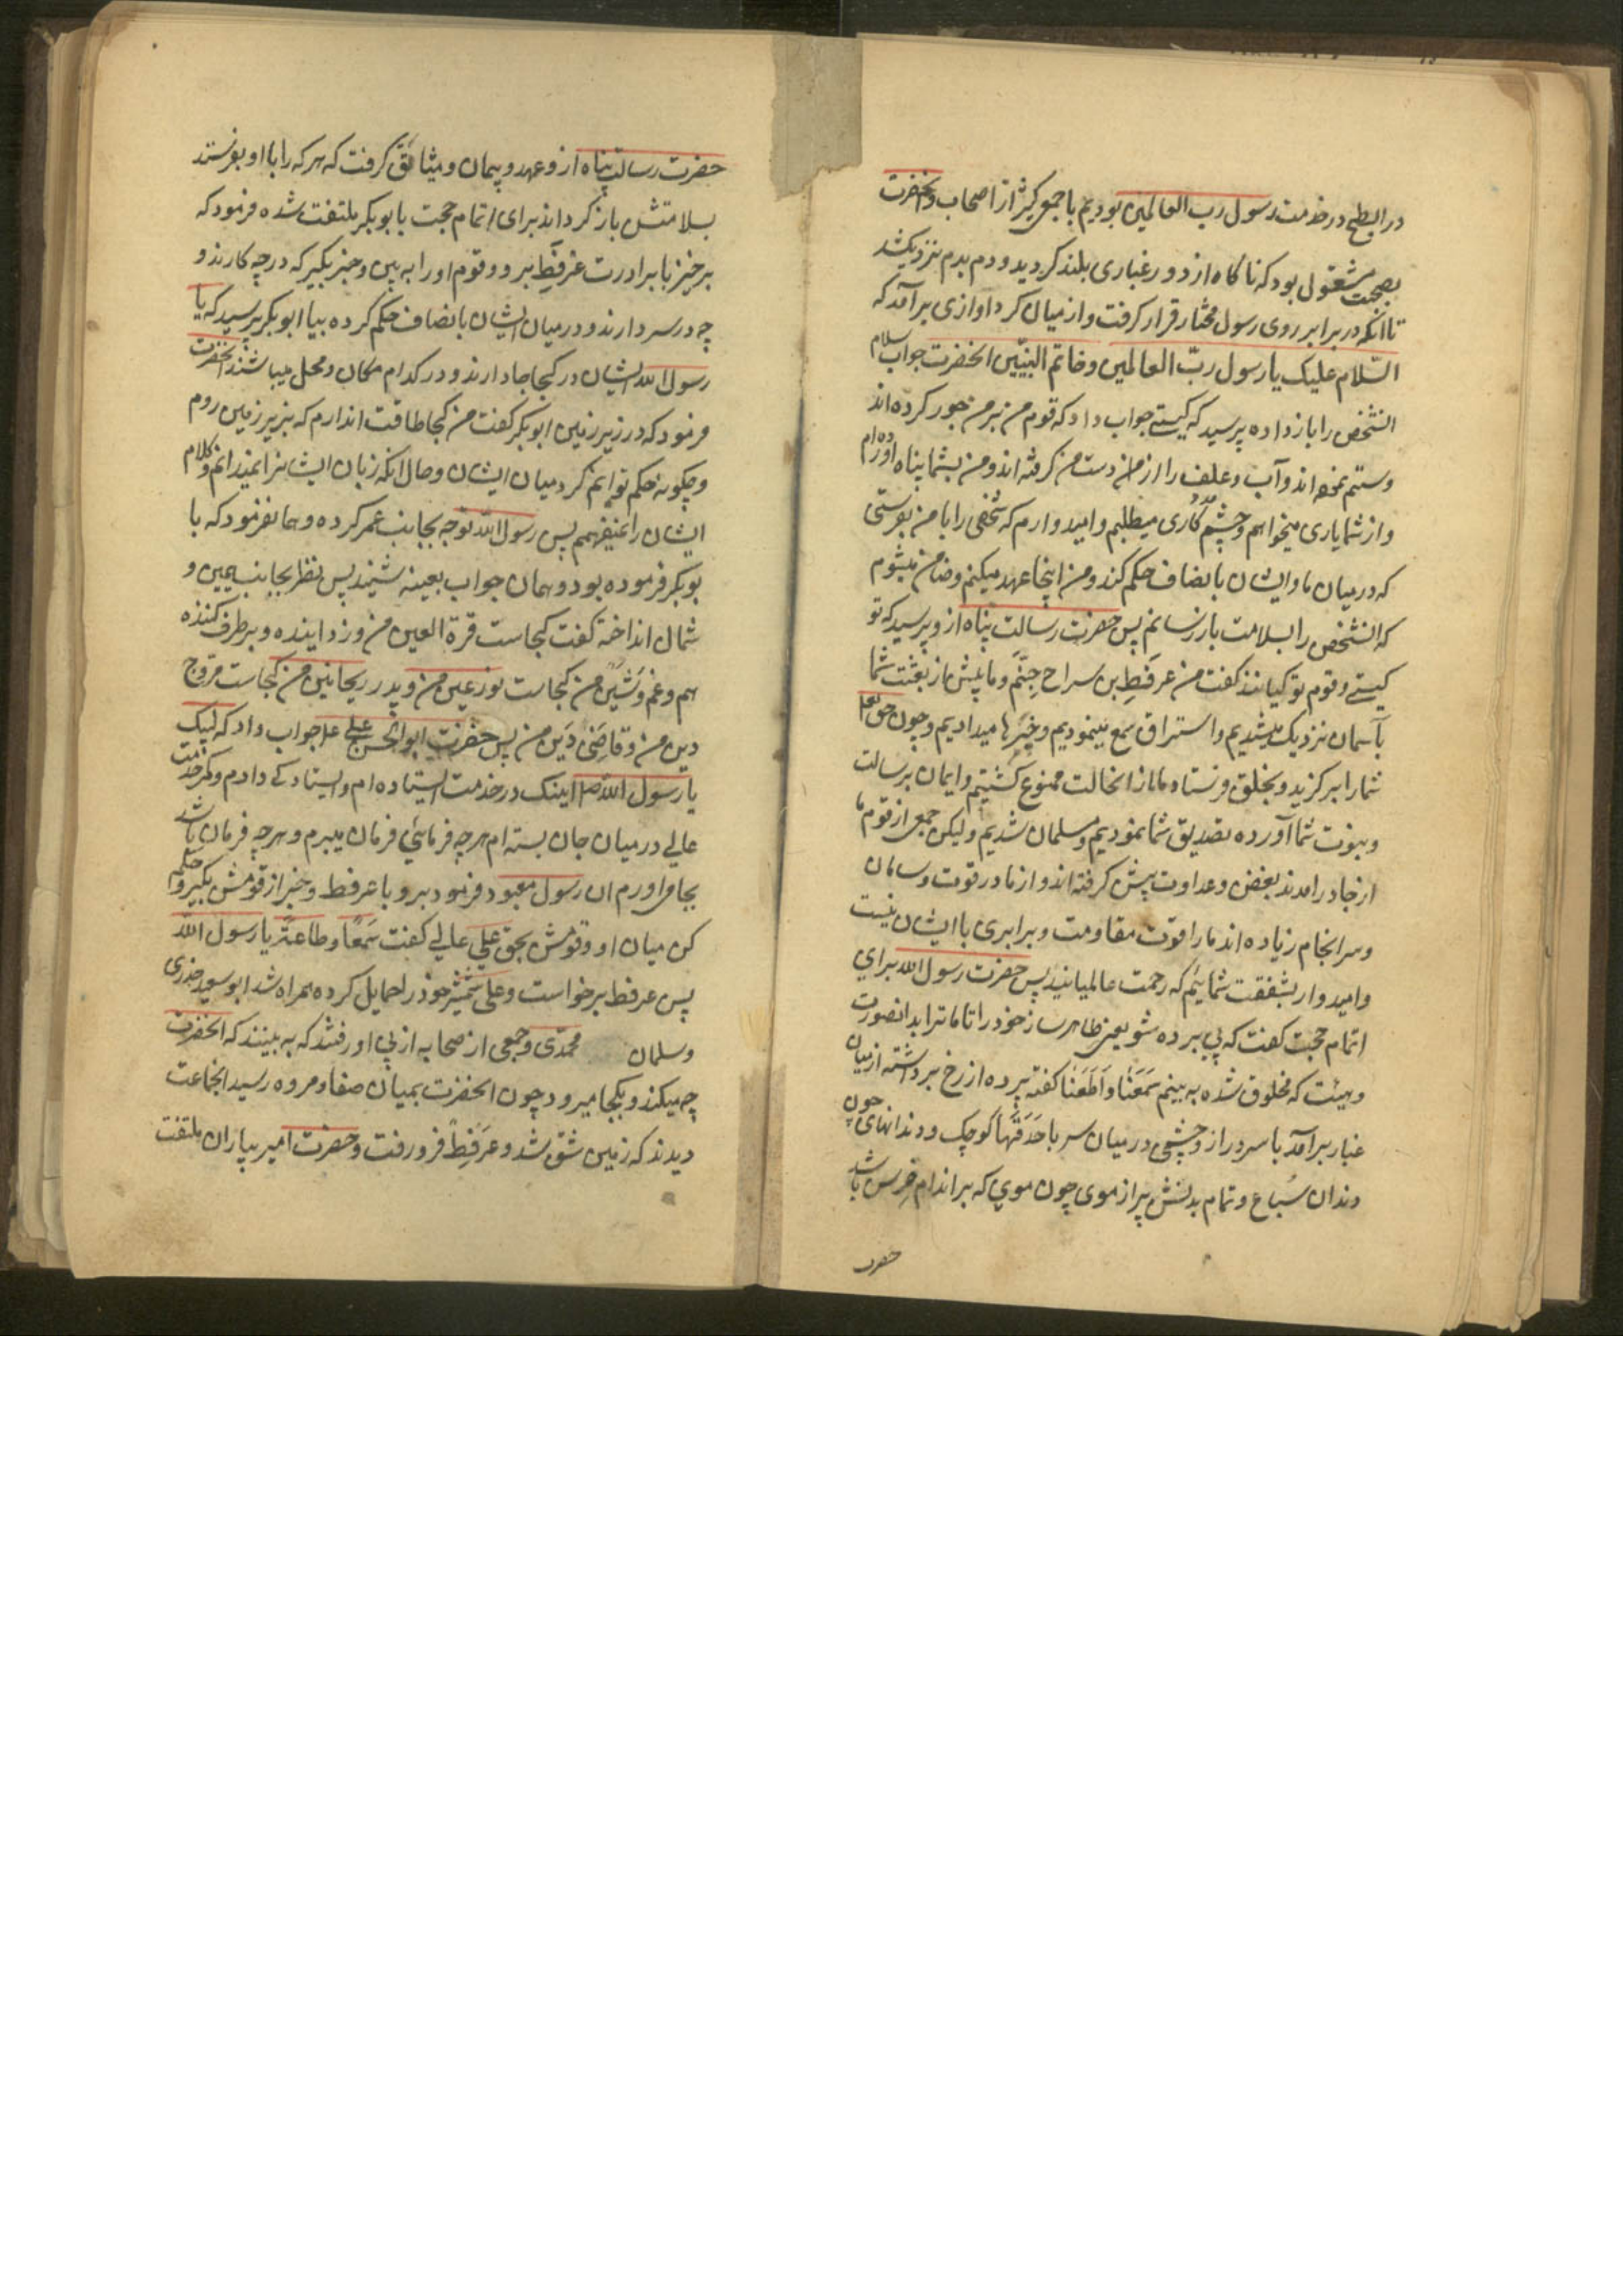 در ابطح در خدمت رسول رب العالمین بودیم با جمعی کثیر از اصحاب و آنحضرت
بصحبت مشغول بود که ناکاه از دور غباری بلند کردید و دم بدم نزدیک شد
تا آنکه در برابر روی رسول مختار قرار کرفت و از میان کرد اوازی برآمد که
السّلام علیک یا رسول ربّ العالمین و خاتم النبیّین انحضرت جواب سلام
انشخص را باز داده پرسید که کیستی جواب داد که قوم من بر من جور کرده اند
و ستم نموده اند و آب و علف را از من و از دست من کرفته اند و من بشما پناه اورده ام
و از شما یاری میخواهم و چشم مددکاری میطلبم و امیدوارم که شخصی را با من بفرستی
که در میان ما و ایشان بانصاف حکم کند و من اینجا عهد میکنم و ضامن میشوم
که انشخص را بسلامت باز رسانم پس حضرت رسالت پناه ازو پرسید که تو
کیستی و قوم تو کیانند کفت من عرفطِ بن سراح جِنّم و ما پیش از بعثت شما
بآسمان نزدیک میشدیم و استراق سمع مینمودیم و خبرها میدادیم و چون حق تعالی
شما را برکزید و بخلق فرستاد ما از انحالت ممنوع کشتیم و ایمان برسالت
و بنوت شما آورده تصدیق شما نمودیم و مسلمان شدیم و لیکن جمعی از قوم ما
از جا درامدند بغض و عداوت پیش کرفته اند و از ما در قوت و سامان
و سرانجام زیاده اند ما را قوت مقاومت و برابری با ایشان نیست
و امیدوار بشفقت شمایئم که رحمت عالمیانید پس حضرت رسول الله برای
اتمام حجت کفت که پی پرده شو یعنی ظاهر ساز خود را تا ما ترا بدانصورت
و هیئت که مخلوق شده به بینم سَمَعَنٰا و اَطَعَنٰا کفته پرده از رخ برداشته از میان
غبار برآمد با سر دراز و چشمی در میان سر با حَدَقَهٰا کوچک و دندانهای چون
دندان سُباع و تمام بدنش پر از موی چون موی که بر اندام خِرس باشد
حضرت
حضرت رسالت پناه ازو عهد و پیمان و میثا ثقَّ کرفت که هر که را با او بفرستد
بسلامتش باز کرداند برای اتمام حجت بابوبکر ملتفت شده فرمود که
برخیز با برادرت عرفطِ برو و قوم او را به بین و خبر بکیر که در چه کارند و
چه در سر دارند و در میان ایشان بانصاف حکم کرده بیا ابوبکر پرسید که یا
رسول الله ایشان در کجا جا دارند و در کدام مکان و محل میباشند انحضرت
فرمود که در زیر زمین ابوبکر کفت من کجا طاقت اندارم که بزیر زمین روم
و چکونه حکم توانم کرد میان ایشان و حال انکه زبان ایشانرا نمیدانم و کلام
ایشان را نمیفهمم پس رسول الله توجه بجانب عمر کرده و همان فرمود که با
بوبکر فرموده بود و همان جواب بعینه شیند پس نظر بجانب یمین و
شمال انداخته کفت کجاست قرة العین من و زداینده و برطرف کننده
هم و غم و شین من کجاست نور عین من و پدر ریحانین من کجاست مروج
دین من و قاضی دَین من پس حضرت ابوالحسن علی جواب داد که لبیک
یا رسول الله اینک در خدمت ایستاده ام و ایستادکی دادم و کمر خدمت
عالی در میان جان بسته ام هر چه فرمائی فرمان میبرم و هر چه فرمان باشد
بجا می اورم ان رسول معبود فرمود برو با عرفط و خبر از قومش بکیر و حکم
کن میان او و قومش بحق علی عالی کفت سَمعًا و طاعتً یا رسول الله
پس عرفط برخواست و علی شمشیر خود را حمایل کرده همراه شد ابو سعید خدری
و سلمان محمّدی و جمعی از صحابه از پی او رفتند که به بینند که انحضرت
چه میکند و بکجا میرود چون انحضرت بمیان صفا و مروه رسید انجماعت
دیدند که زمین شق شد و عَرفِطً فرو رفت و حضرت امیر بیاران ملتفت